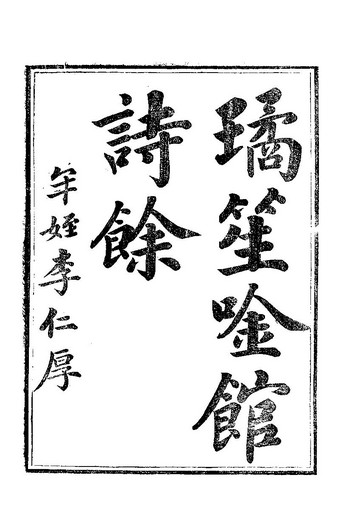 璚笙唫館
詩餘
年姪李仁厚